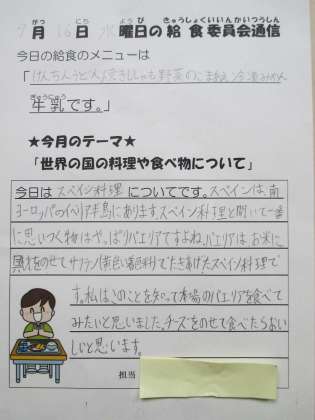 がつ にち ようび きゅうしょくいいんかいつうしん
9月16日水曜日の給食委員会通信
今日の給食のメニューは
「けんちんうどん焼きししゃも野菜のごまあえ冷凍みかん
ぎゅうにゅう
牛乳です。」
★今月のテーマ★
「世界の国の料理や食べ物について」
今日はスペイン料理についてです。スペインは、南
ヨーロッパのイベリア半島にあります。スペイン料理と聞いて一番
に思いつく物はやっぱりパエリアですよね。パエリアは、お米に
をのせてサフラン(黄色い着色料)でたきあげたスペイン料理で
す。私はこのことを知って本場のパエリアを食べて
みたいと思いました。チーズをのせて食べたらおい
しいと思います。
担当